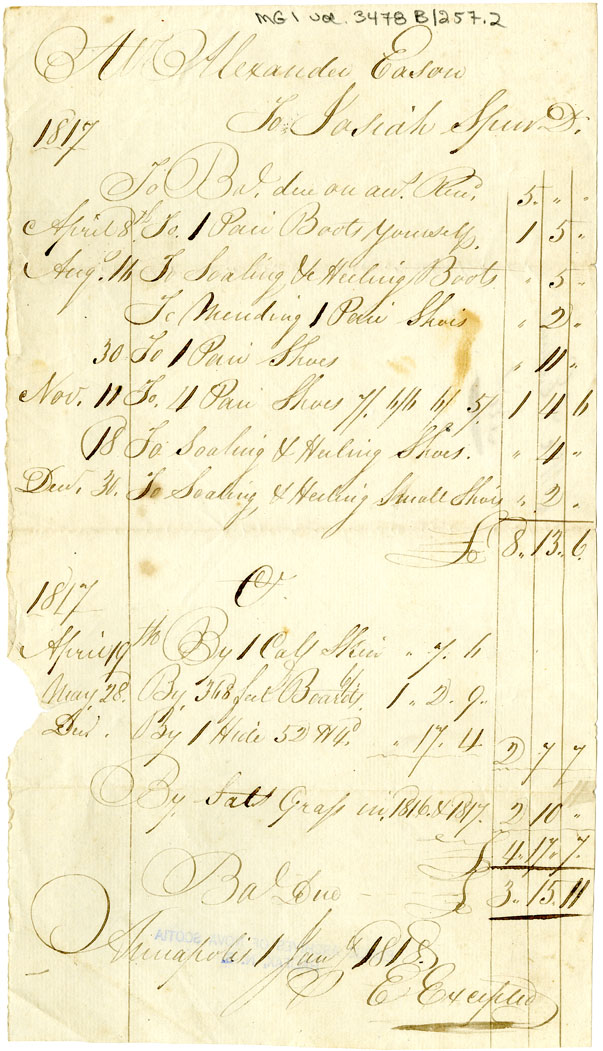 MG 1 vol. 3478 B/257.2
Mr Alexander Eason
To Josiah Spurr Dr.
1817
To Bal. due on act. Ren'd. 5 " "
April 8th To 1 Pair Boots yourself. 1 5 "
Aug. 16 To Soaling & Heeling Boots " 5 "
To Mending 1 Pair Shoes " 2 "
30 To 1 Pair Shoes " 11 "
Nov. 11 To 4 Pair Shoes 7/. 6/6 6/ 5/. 1 4 6
18 To Soaling & Heeling Shoes. " 4 "
Decr. 30. To Soaling & Heeling Small Shoes " 2 "
£ 8.. 13.. 6
1817 Cr.
April 19th By 1 Calf Skin " 7. 6
May 28. By 368 feet Boards 6/ 1.. 2. 9.
Decr. By 1 Hide 52 Wt. " 17. 4 2 7 7
By Salt Grass in 1816 & 1817. 2 10 "
£ 4.. 17.. 7.
Bal. Due £ 3.. 15. 11
Annapolis 1 Jany. 1818.
E Excepted
ARCHIVES OF NOVA SCOTIA